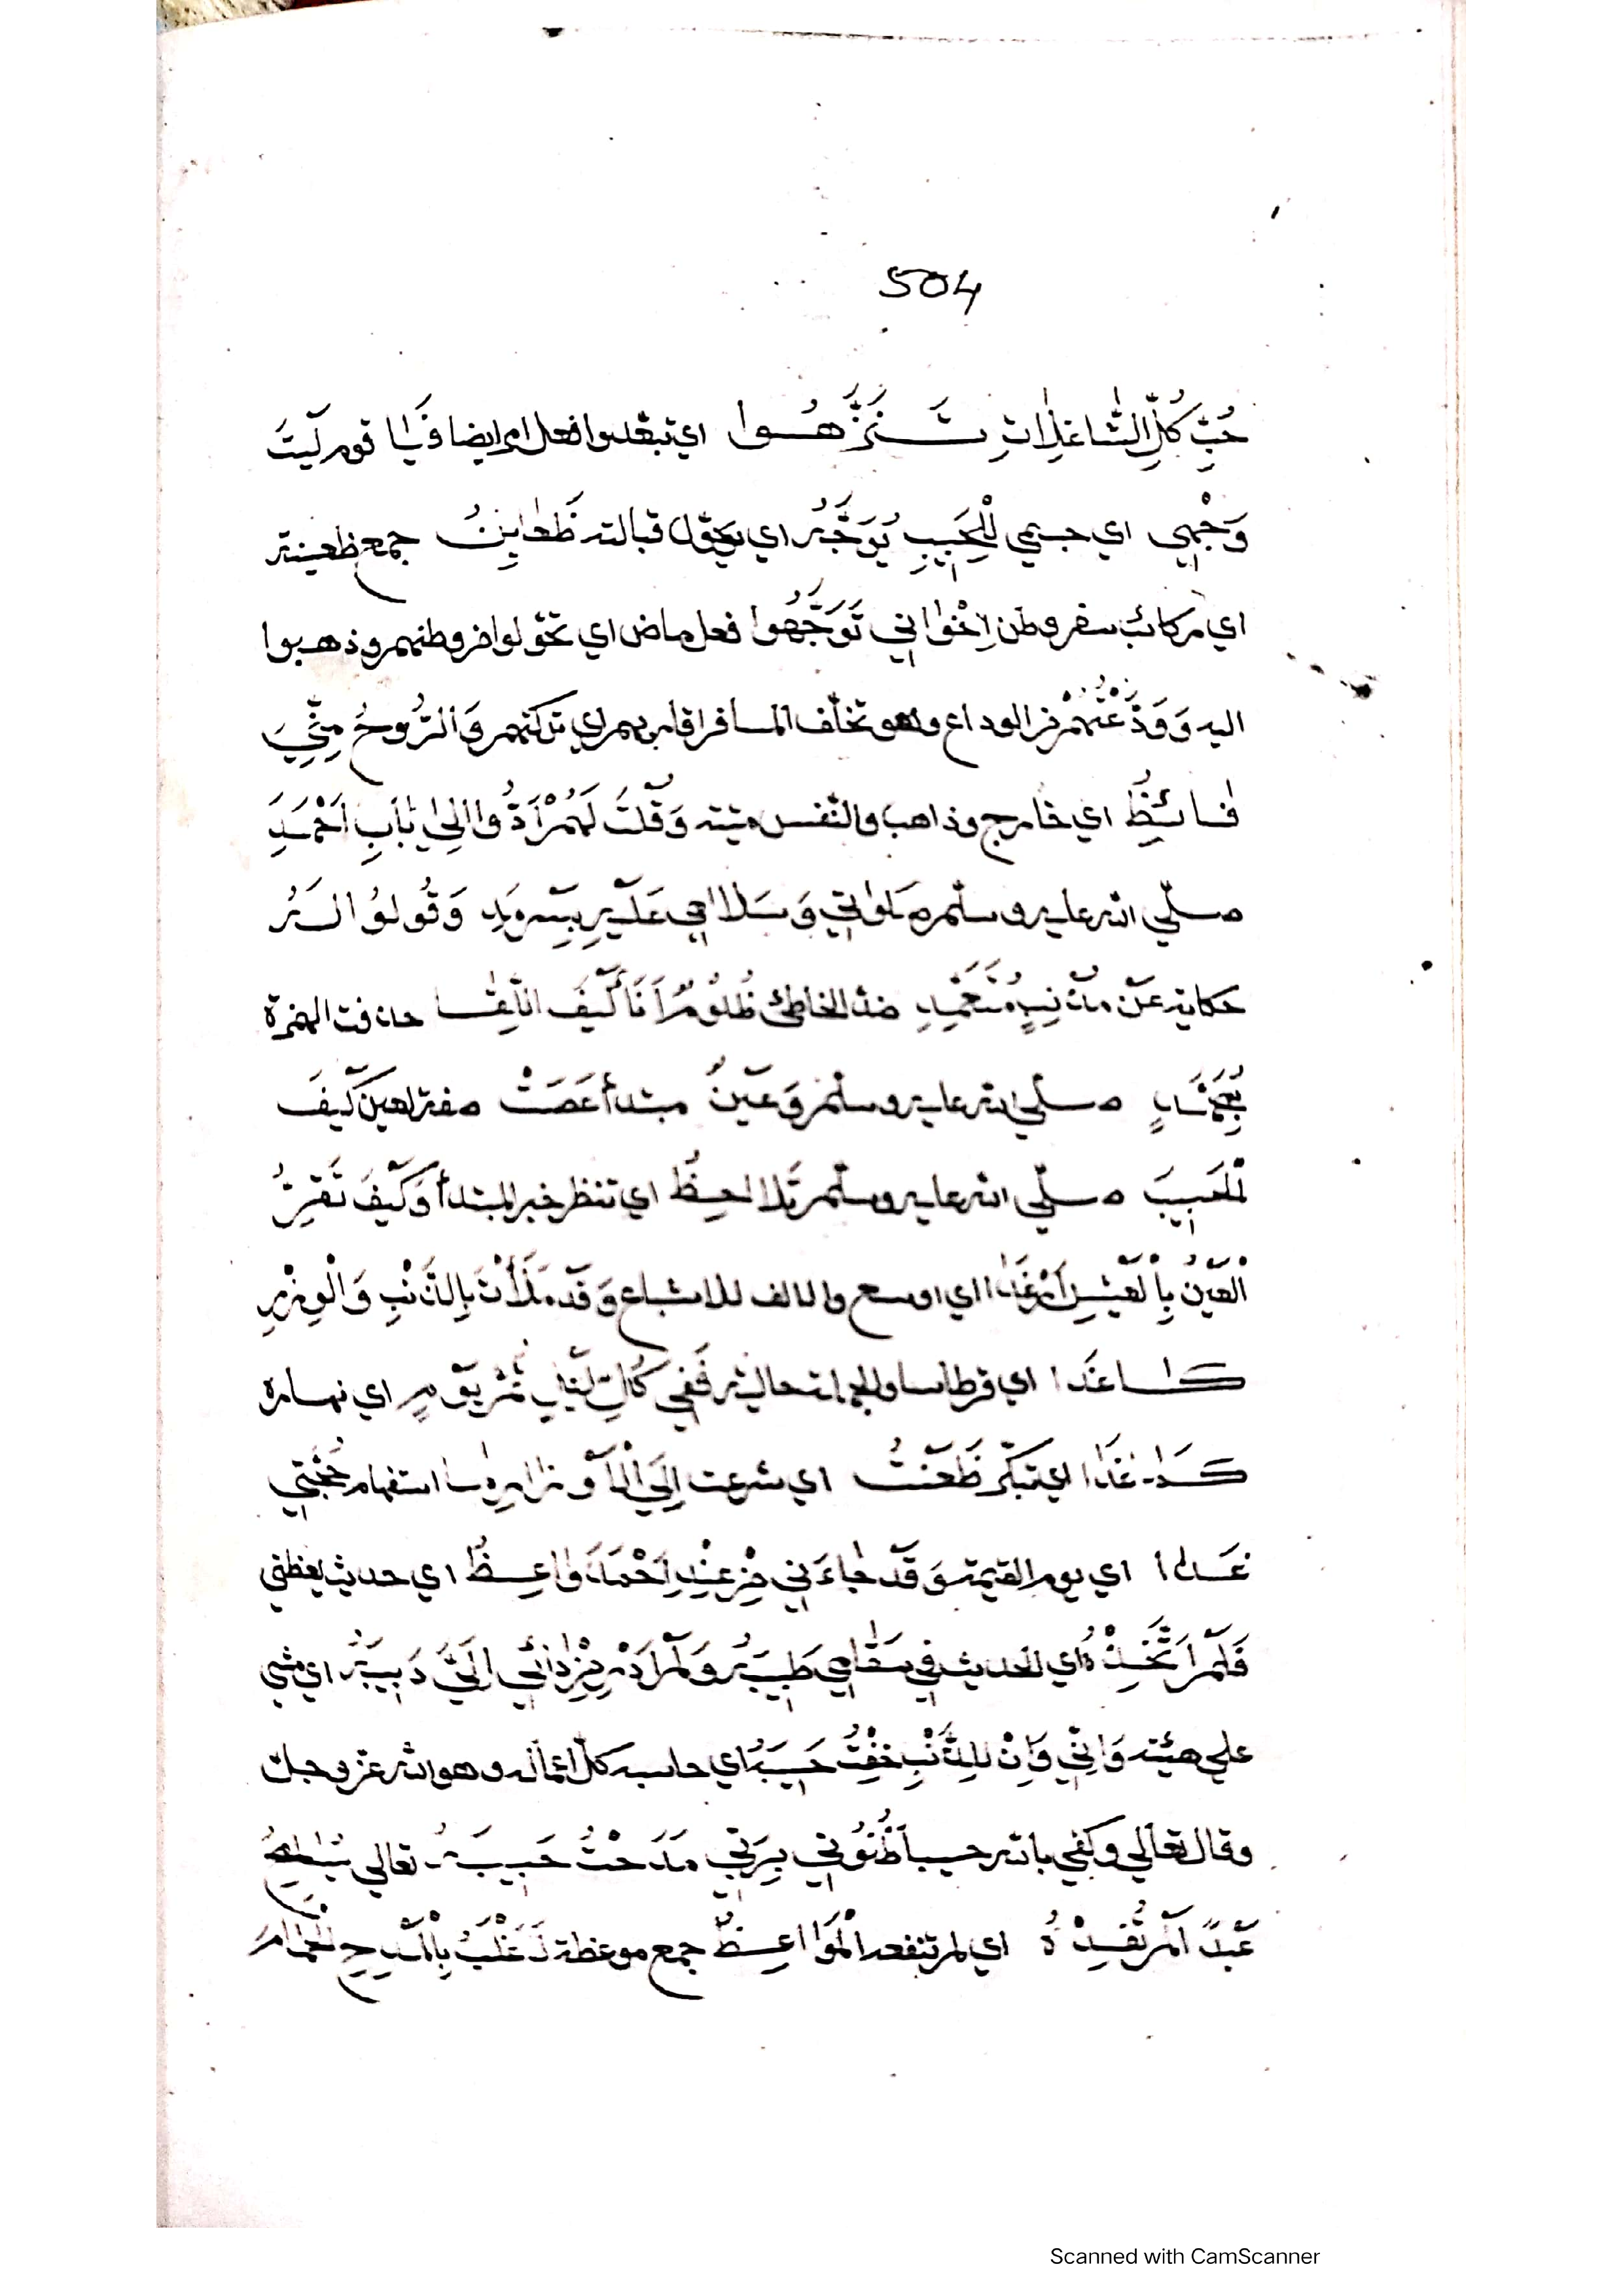 504
حُبِّ كُلِّ الشَّاغِلَاتِ تَنَزَّهُوا اي تبعّدوا فعل امر ايضا فَيَا قوم لَيْتَ
وَجْهِي اي جسمي لِلْحَبِيبِ يُوَجَّهُ اي يحوّل قبالته ظَعَايِنُ جمع ظعينة
اي مركائب سفر وطن لِاخْوَانِي تَوَجَّهُوا فعل ماض اي تحوّلوا من وطنهم وذهبوا
اليه وَوَدَّعْتُهُمْ من الوداع وهو تخلّف المسافر اقاربهم اي تركتهم وَالرُّوحُ مِنِّيَ
فَائِظُ اي خارج وذاهب والنفس ميتة وَقُلْتُ لَهُمْ اَدُّوا الِي بَابِ اَحْمَدِ
صلّي الله عليه وسلّم صَلَوَاتِي وَسَلَامِي عَلَيْهِ بِسَرْمَدِ وَقُولُوا لَهُ
حكاية عَنْ مذْنِبٍ مُتَعَمِّدٍ ضدّ الخاطئ ظَلُومٌ اَنَا كَيْفَ اللِّقَا حذفت الهمزة
صلّي الله عليه وسلّم وَعَيْنٌ مبتدأ عَصَتْ صفة لعين كَيْفَ
الْحَبِيبَ صلّي الله عليه وسلّم تُلَاحِظُ اي تنظر خبر المبتدأ وَكَيْفَ تَقِرُّ
الْعَيْنُ بِالْعَيْشِ اَرْغَدَا اي اوسع والالف للاشباع وَقَدْ مَلَأَتْ بِالذَّنْبِ وَالْوِزْرِ
كَاغَدَا اي قرطاسا والجملة حالية فَفِي كُلِّ لَيْلٍ ثُمَّ يَوْمٍ اي نهاره
كَذَا غَدَا اي تبكّر ظَعَنْتُ اي شرعت اِلَي استفهام حُجَّتِي
غَدَا اي يوم القيمة وَقَدْ جَاءَنِي مِنْ عِنْدِ اَحْمَدَ وَاعِظُ اي حديث يعظني
فَلَمْ اَتَّخِذْهُ اي الحديث فِي سَقَامِي طَبِيبَهُ وَلَمْ اَدْرِ مِنْ دَائِي اِلَيَّ دَبِيبَهُ اي مشي
علي هيئته وَاِنِّي وَاِنْ لِلذَّنْبِ خِفْتُ حَسِيبَهُ اي حاسبه وهو الله عزّ وجلّ
وقال تعالي وكفي بالله حسيبا اَظُنُّونِي بِرَبِّي مَدَحْتُ حَبِيبَهُ تعالي
عَبْدًا لَمْ تُفِدْهُ اي لم تنفعه الْمَوَاعِظُ جمع موعظة بِالْمَدِيحِ
Scanned with CamScanner